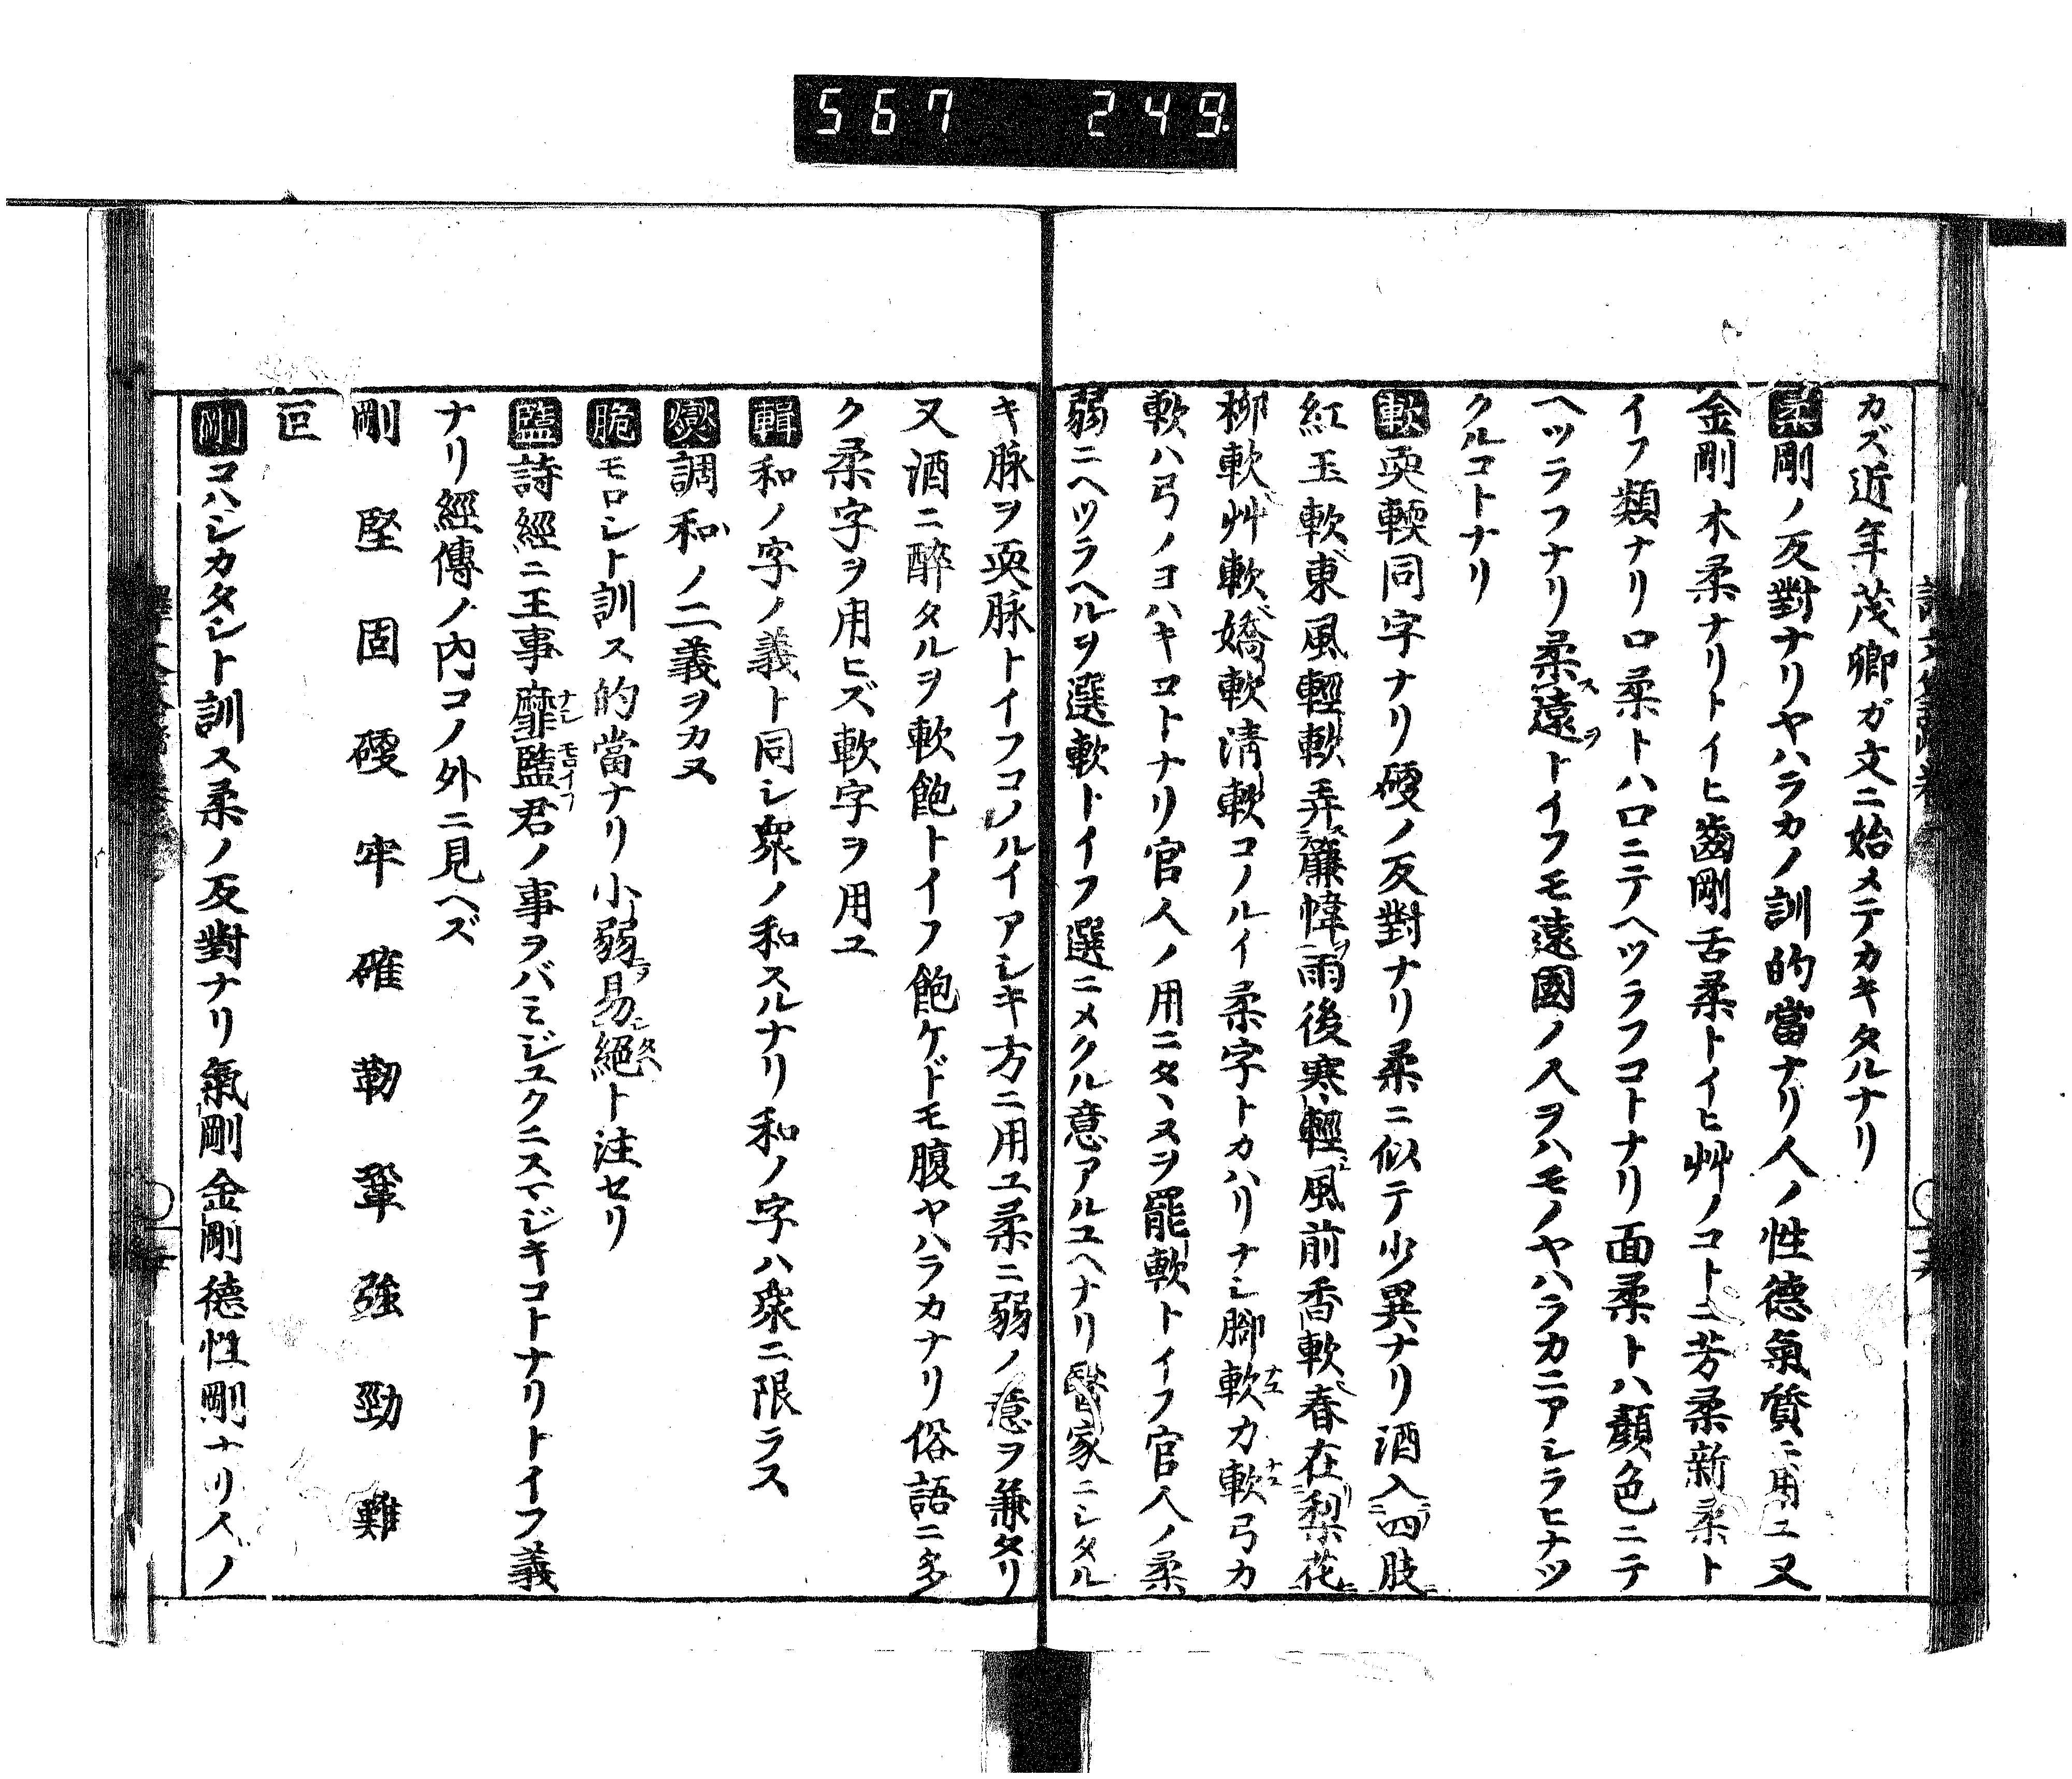 567 249
カズ近年茂卿ガ文ニ始メテカキタルナリ
柔剛ノ反對ナリヤハラカノ訓的當ナリ人ノ性德氣質ニ用ユ又
金剛木柔ナリトイヒ齒剛舌柔トイヒ艸ノコトニ芳柔新柔ト
イフ類ナリ口柔トハ口ニテヘツラフコトナリ面柔トハ顏色ニテ
ヘツラフナリ柔遠トイフモ遠國ノ人ヲハモノヤハラカニアシラヒナツ
クルコトナリ
軟耎輭同字ナリ硬ノ反對ナリ柔ニ似テ少異ナリ酒入四肢
紅玉軟東風輕軟弄簾幃雨後寒輕風前香軟春在梨花
柳軟艸軟嬌軟淸軟コノルイ柔字トカハリナシ脚軟力軟弓力
軟ハ弓ノヨハキコトナリ官人ノ用ニタヽヌヲ罷軟トイフ官人ノ柔
弱ニヘツラヘルヲ選軟トイフ選ニメクル意アルユヘナリ醫家ニシタル
キ脉ヲ耎脉トイフコノルイアシキ方ニ用ユ柔ニ弱ノ意ヲ兼タリ
又酒ニ醉タルヲ軟飽トイフ飽ケドモ腹ヤハラカナリ俗語ニ多
ク柔字ヲ用ヒズ軟字ヲ用ユ
輯和ノ字ノ義ト同シ衆ノ和スルナリ和ノ字ハ衆ニ限ラス
燮調和ノ二義ヲカヌ
脆モロシト訓ス的當ナリ小弱易絕ト注セリ
盬詩經ニ王事靡盬君ノ事ヲバミジユクニスマジキコトナリトイフ義
ナリ經傳ノ內コノ外ニ見ヘズ
剛 堅 固 硬 牢 確 勒 鞏 強 勁 難
叵
剛コハシカタシト訓ス柔ノ反對ナリ氣剛金剛德性剛ナリ人ノ